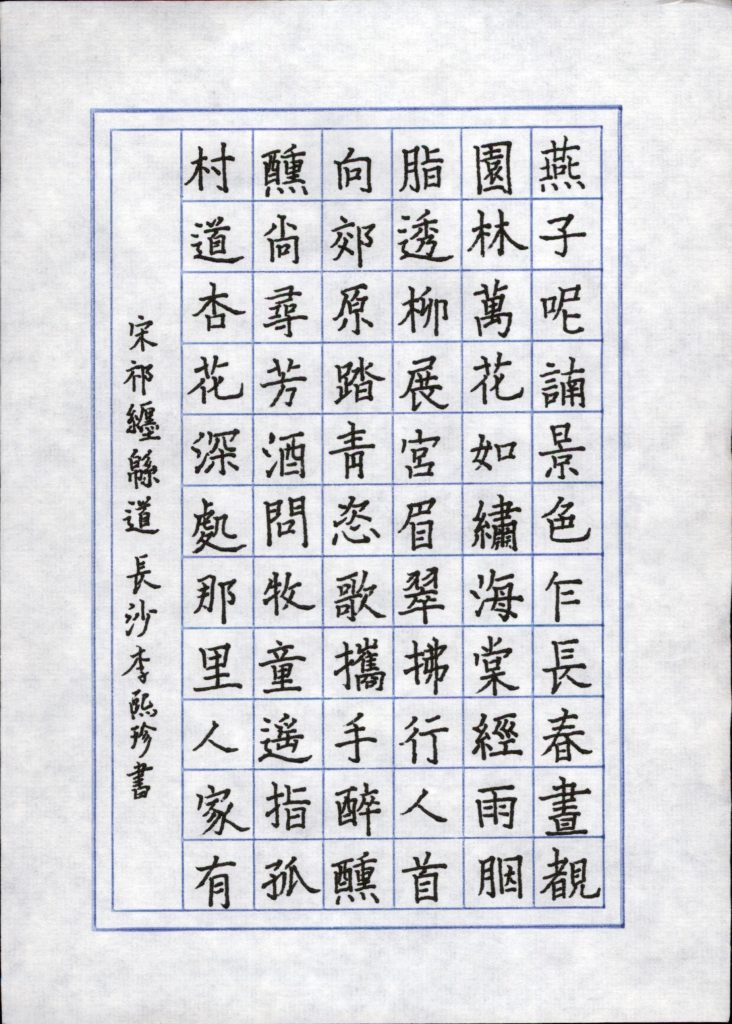 燕子呢諵景色乍長春晝覩
園林萬花如繡海棠經雨胭
脂透柳展宮眉翠拂行人首
向郊原踏青恣歌攜手醉醺
醺尚尋芳酒問牧童遥指孤
村道杏花深處那里人家有
宋祁纏緜道 長沙李熙珍書